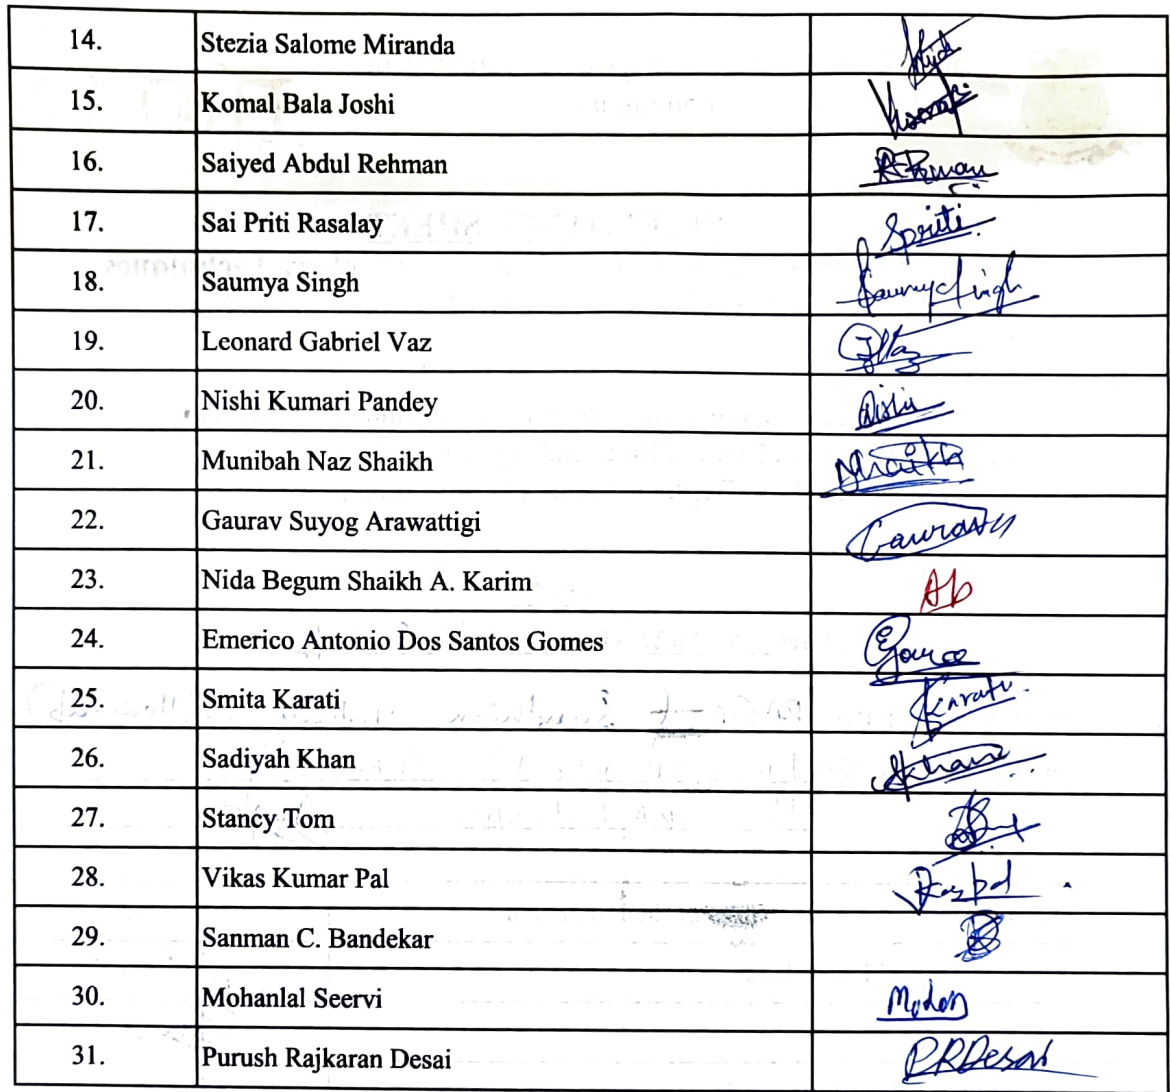 14. Stezia Salome Miranda
15. Komal Bala Joshi
16. Saiyed Abdul Rehman
17. Sai Priti Rasalay Spriti.
18. Saumya Singh Saumya Singh
19. Leonard Gabriel Vaz
20. Nishi Kumari Pandey Nishi
21. Munibah Naz Shaikh Shaikh
22. Gaurav Suyog Arawattigi Gaurav
23. Nida Begum Shaikh A. Karim Ab
24. Emerico Antonio Dos Santos Gomes
25. Smita Karati Karati.
26. Sadiyah Khan
27. Stancy Tom
28. Vikas Kumar Pal
29. Sanman C. Bandekar
30. Mohanlal Seervi Mohan
31. Purush Rajkaran Desai PRDesai